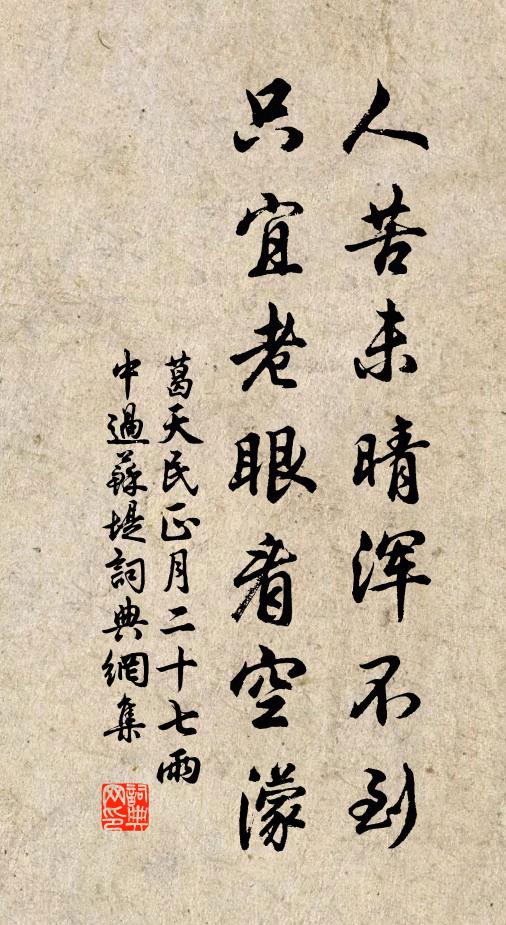 人苦未晴浑不到
只宜老眼看空濛
葛天民正月二十七雨
中過蘇堤詞典網集
詞典
网印